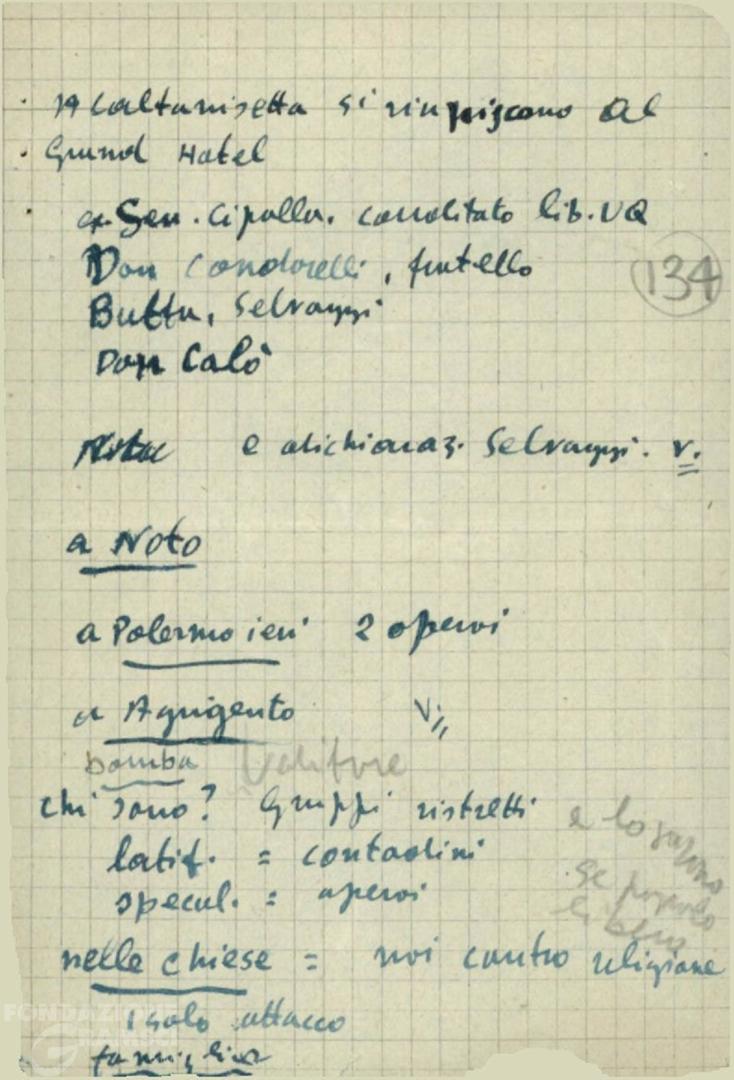 A Caltanisetta si riuniscono al
Grand Hotel
ex Sen. Cipolla. candidato lib. UQ
Don Condorelli, fratello
Buttu, Selvaggi
Don Calò
e dichiaraz. Selvaggi. v.
134
a Noto
a Palermo ieri 2 operai
a Agrigento V.
bomba
chi sono? Gruppi ristretti
latif. = contadini
specul. = operai
e lo sanno
se popolo
nelle chiese = noi contro religione
1 solo attacco
famiglia
FONDAZIONE
GRAMSCI